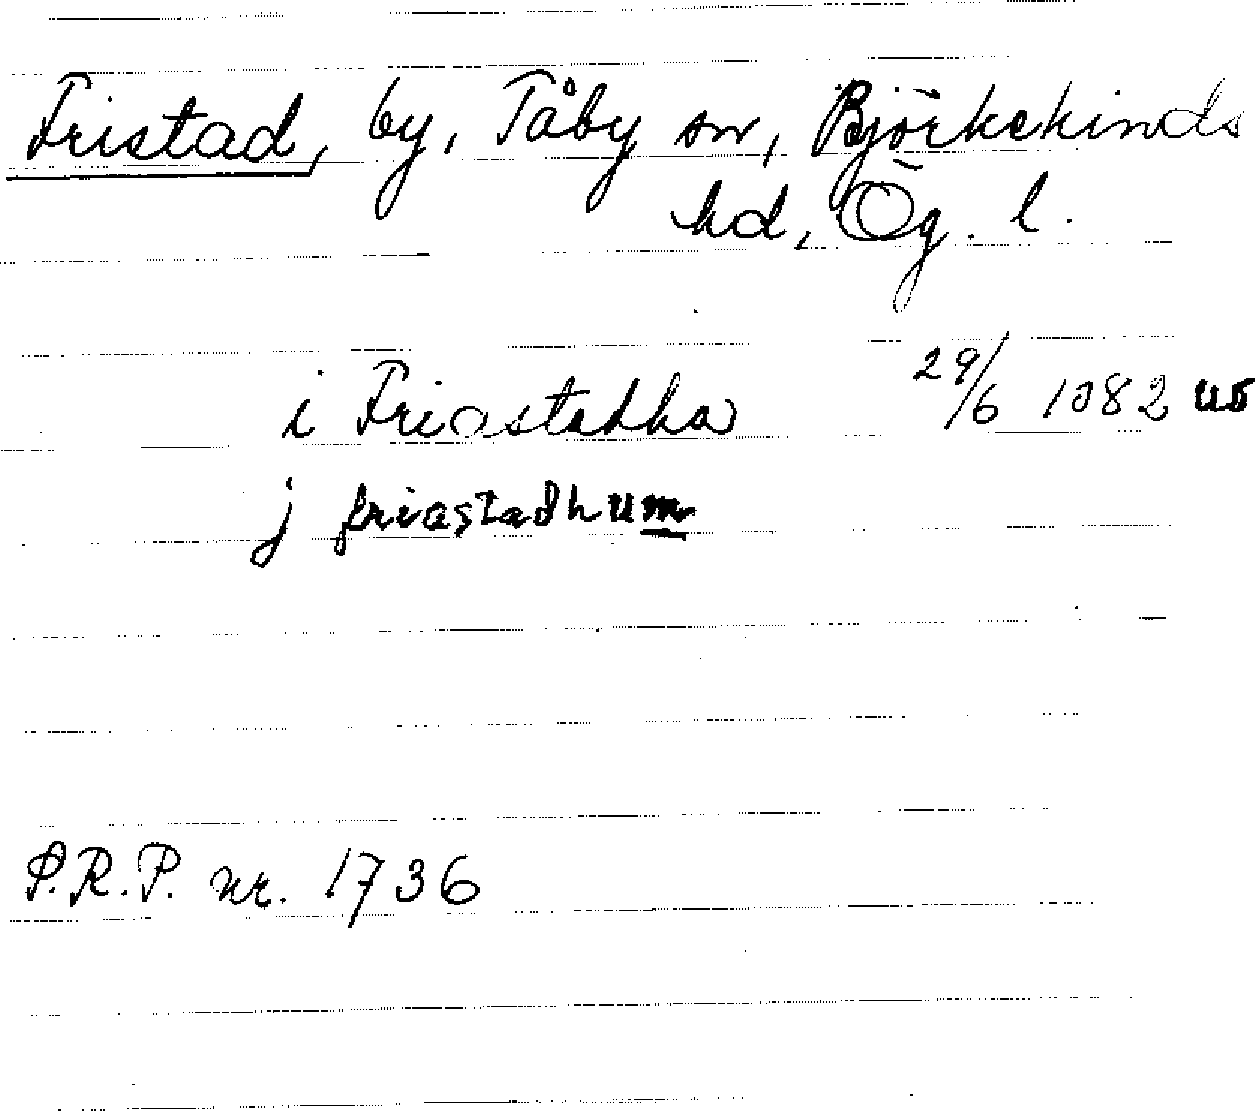 Fristad, by, Tåby sn, Björkekinds
hd, Ög. l.
i Friastadha 29/6 1382 uo
j friastadhum
S.R.P. nr. 1736